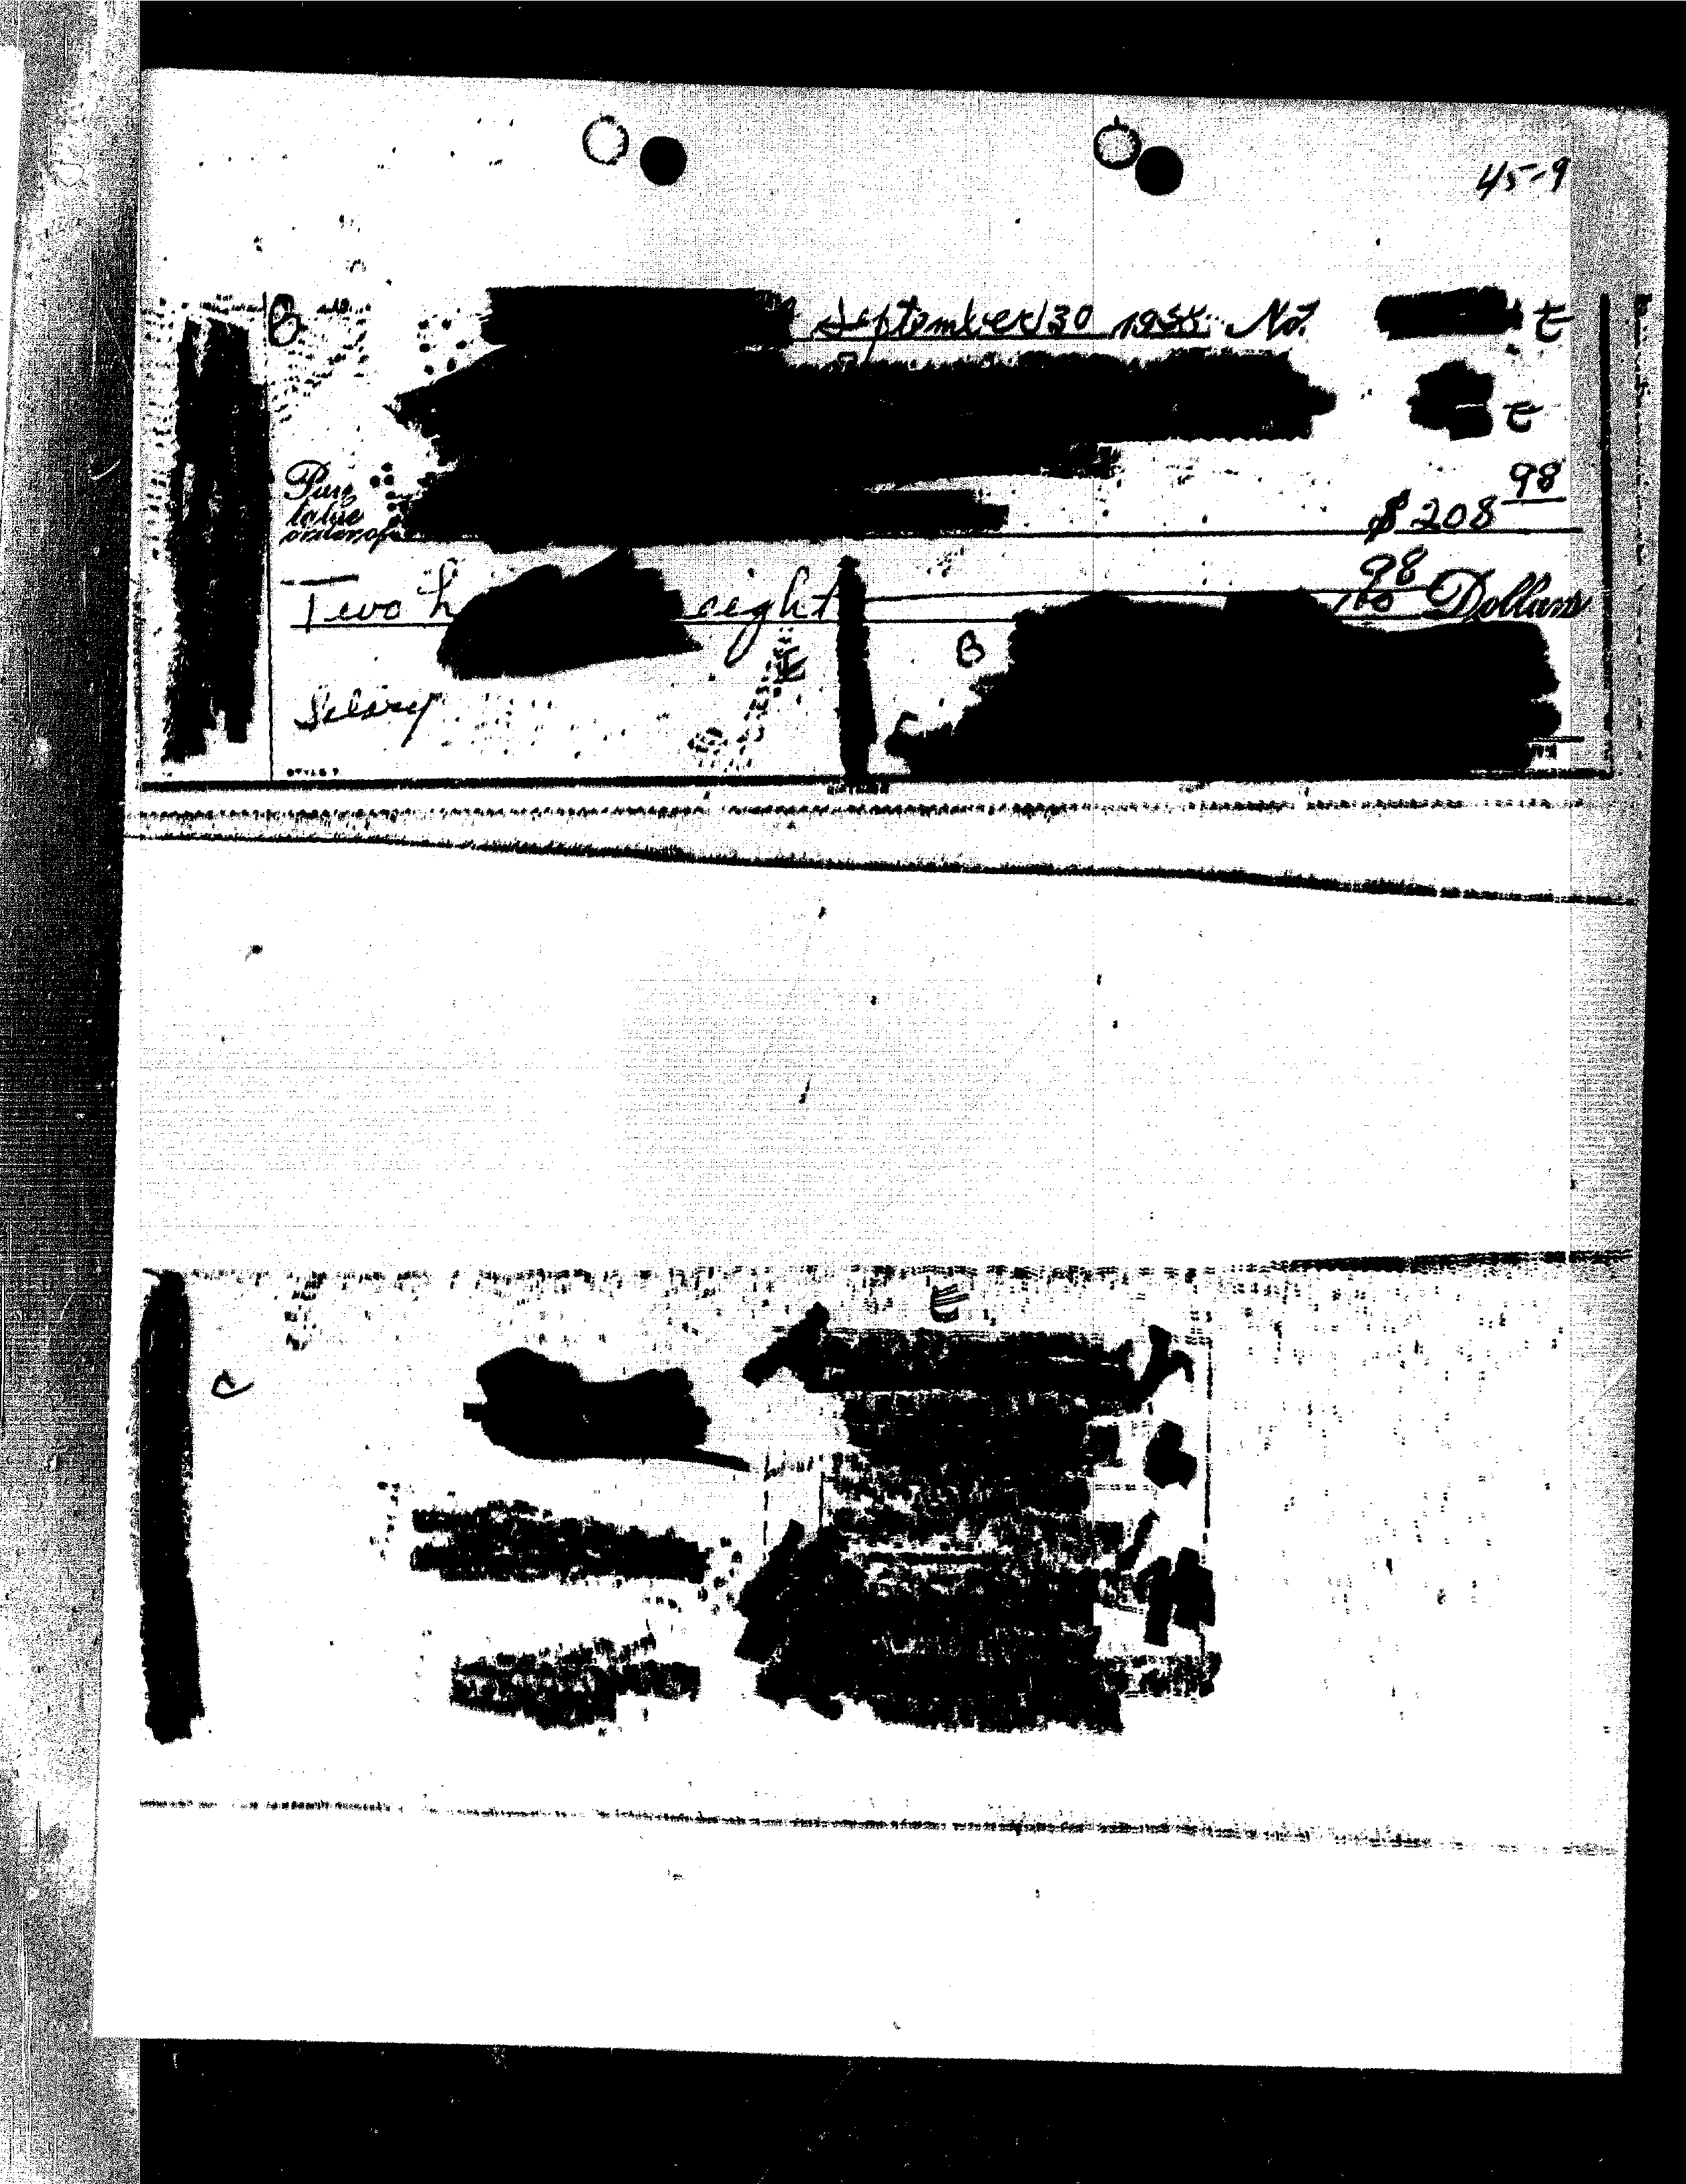 45-9
B September 30 1955 No. E
E
Pay
to the
order of $ 208 98
Two h eight 98/100 Dollars
B
Salary
STYLE
E
C